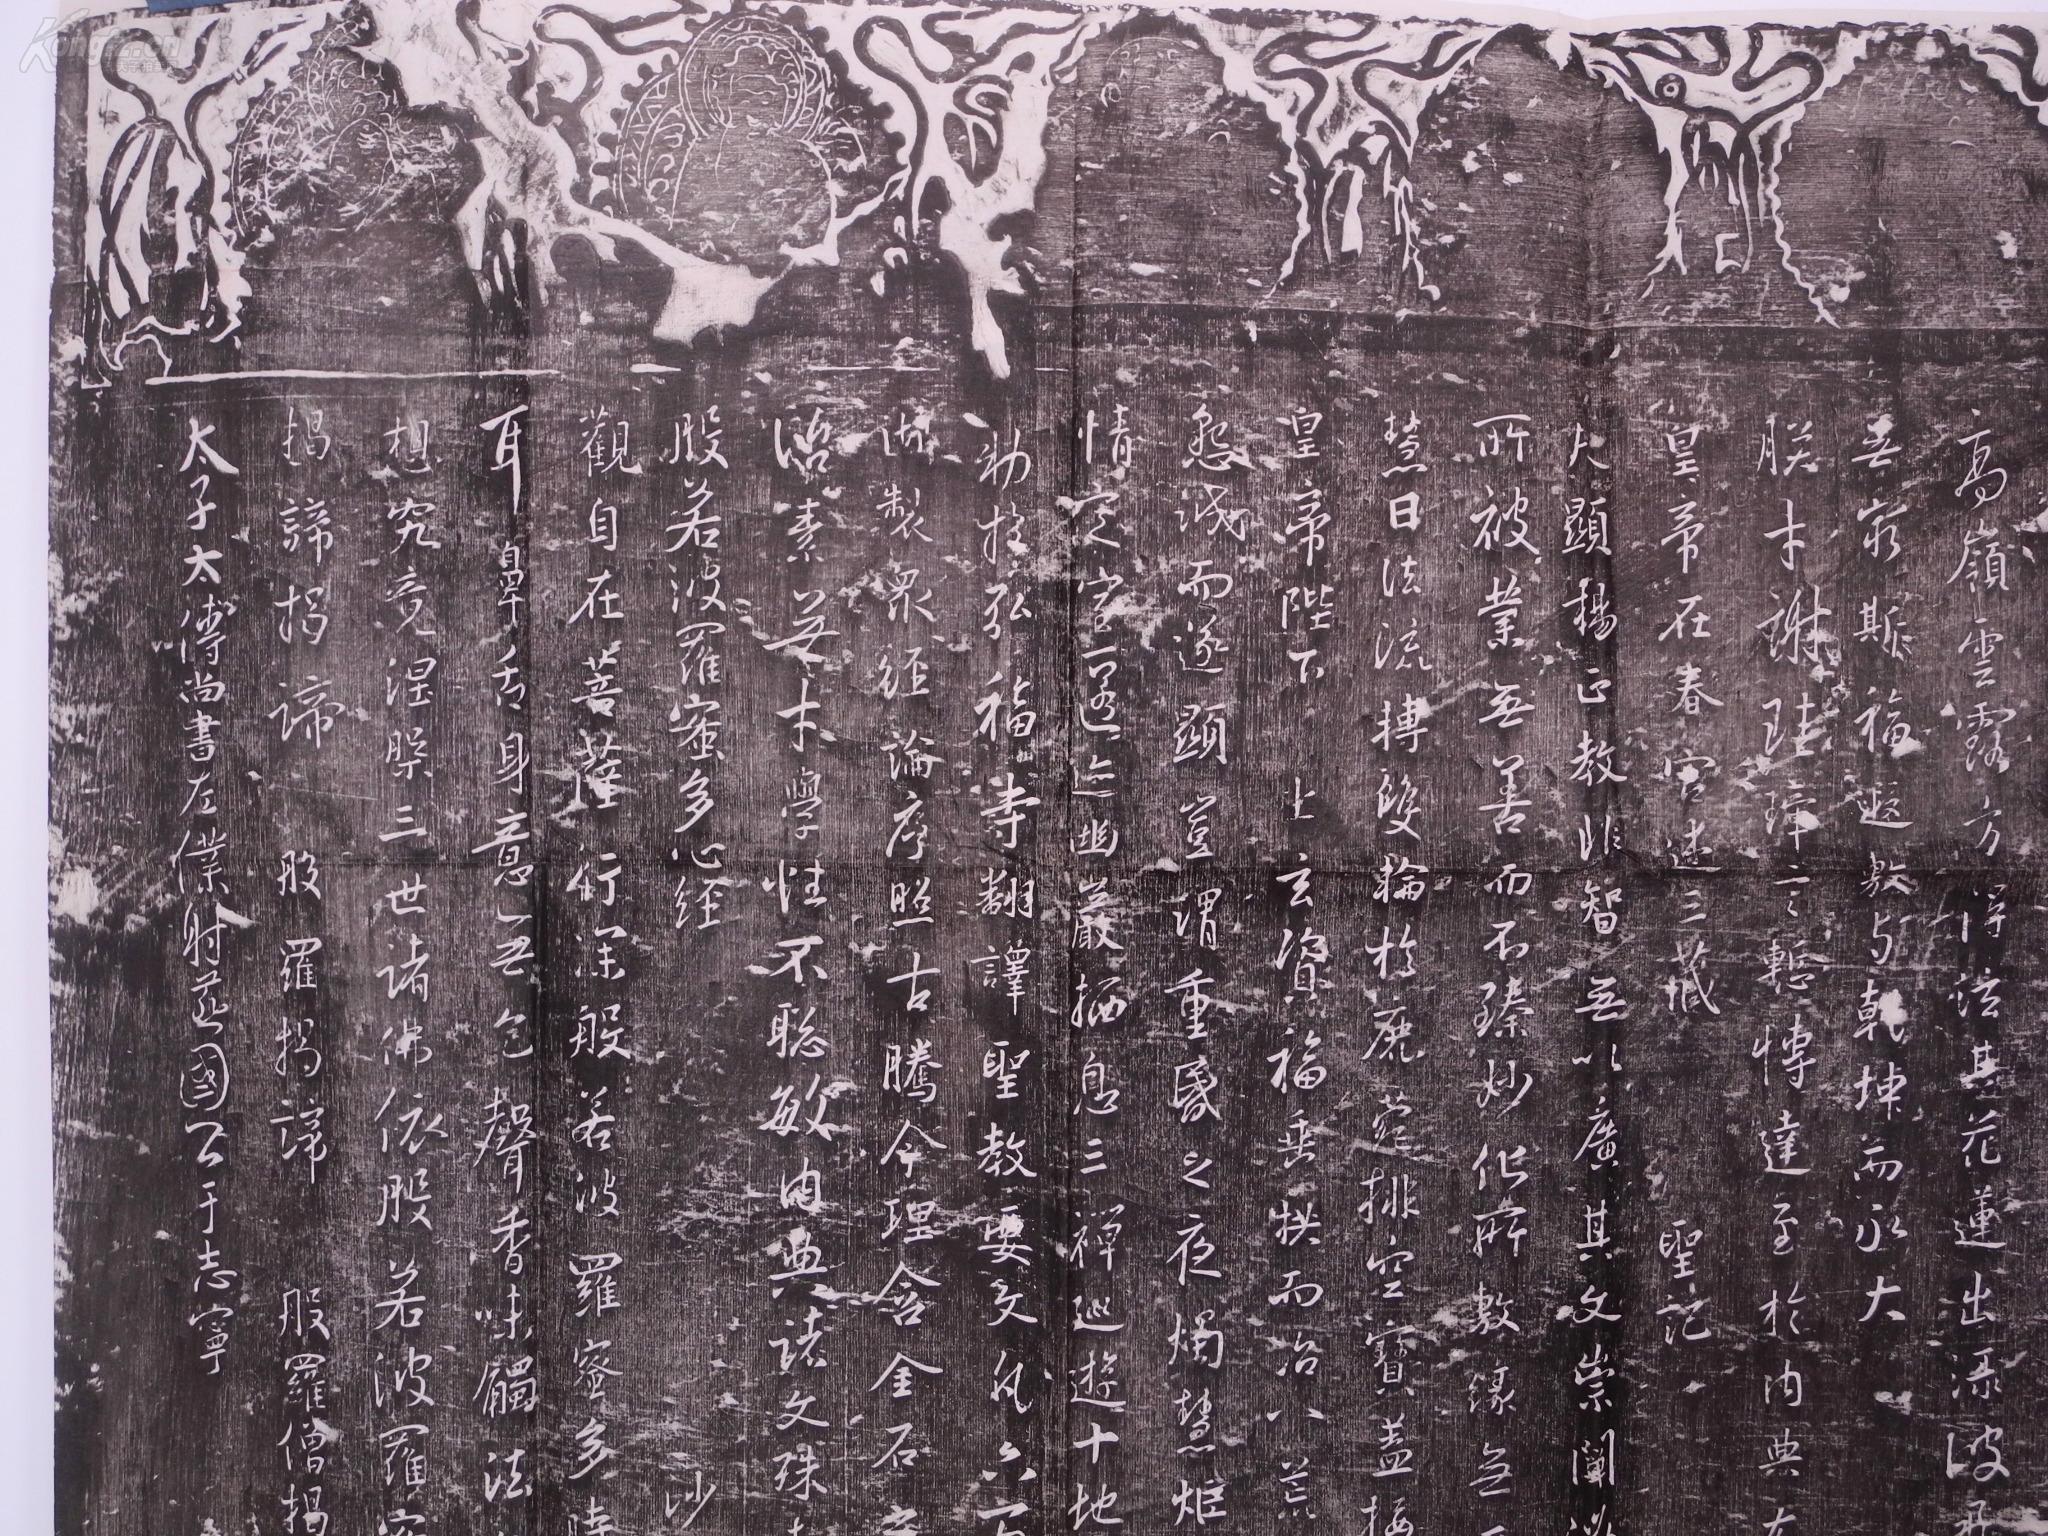 高嶺雲露方得泫其花蓮出淥波
無窮斯福遐敷与乾坤而永大
朕才謝珪璋言慙博達至於內典
皇帝在春宮述三藏 聖記
夫顯揚正教非智無以廣其文崇闡
所被業無善而不臻妙化所敷緣無
慧日法流轉雙輪於鹿菀排空寶蓋接
皇帝陛下 上玄資福垂拱而治八荒
忽泯而還顯豈謂重昏之夜燭慧炬
情定室匿迹幽巖栖息三禪巡遊十地
勅於弘福寺翻譯聖教要文凡六百
御製眾經論序照古騰今理含金石
治素無才學性不聰敏內典諸文殊
般若波羅蜜多心經 沙
觀自在菩薩行深般若波羅蜜多時
耳鼻舌身意無色聲香味觸法
想究竟涅槃三世諸佛依般若波羅蜜
揭諦揭諦 般羅揭諦 般羅僧揭
太子太傅尚書左僕射燕國公于志寧